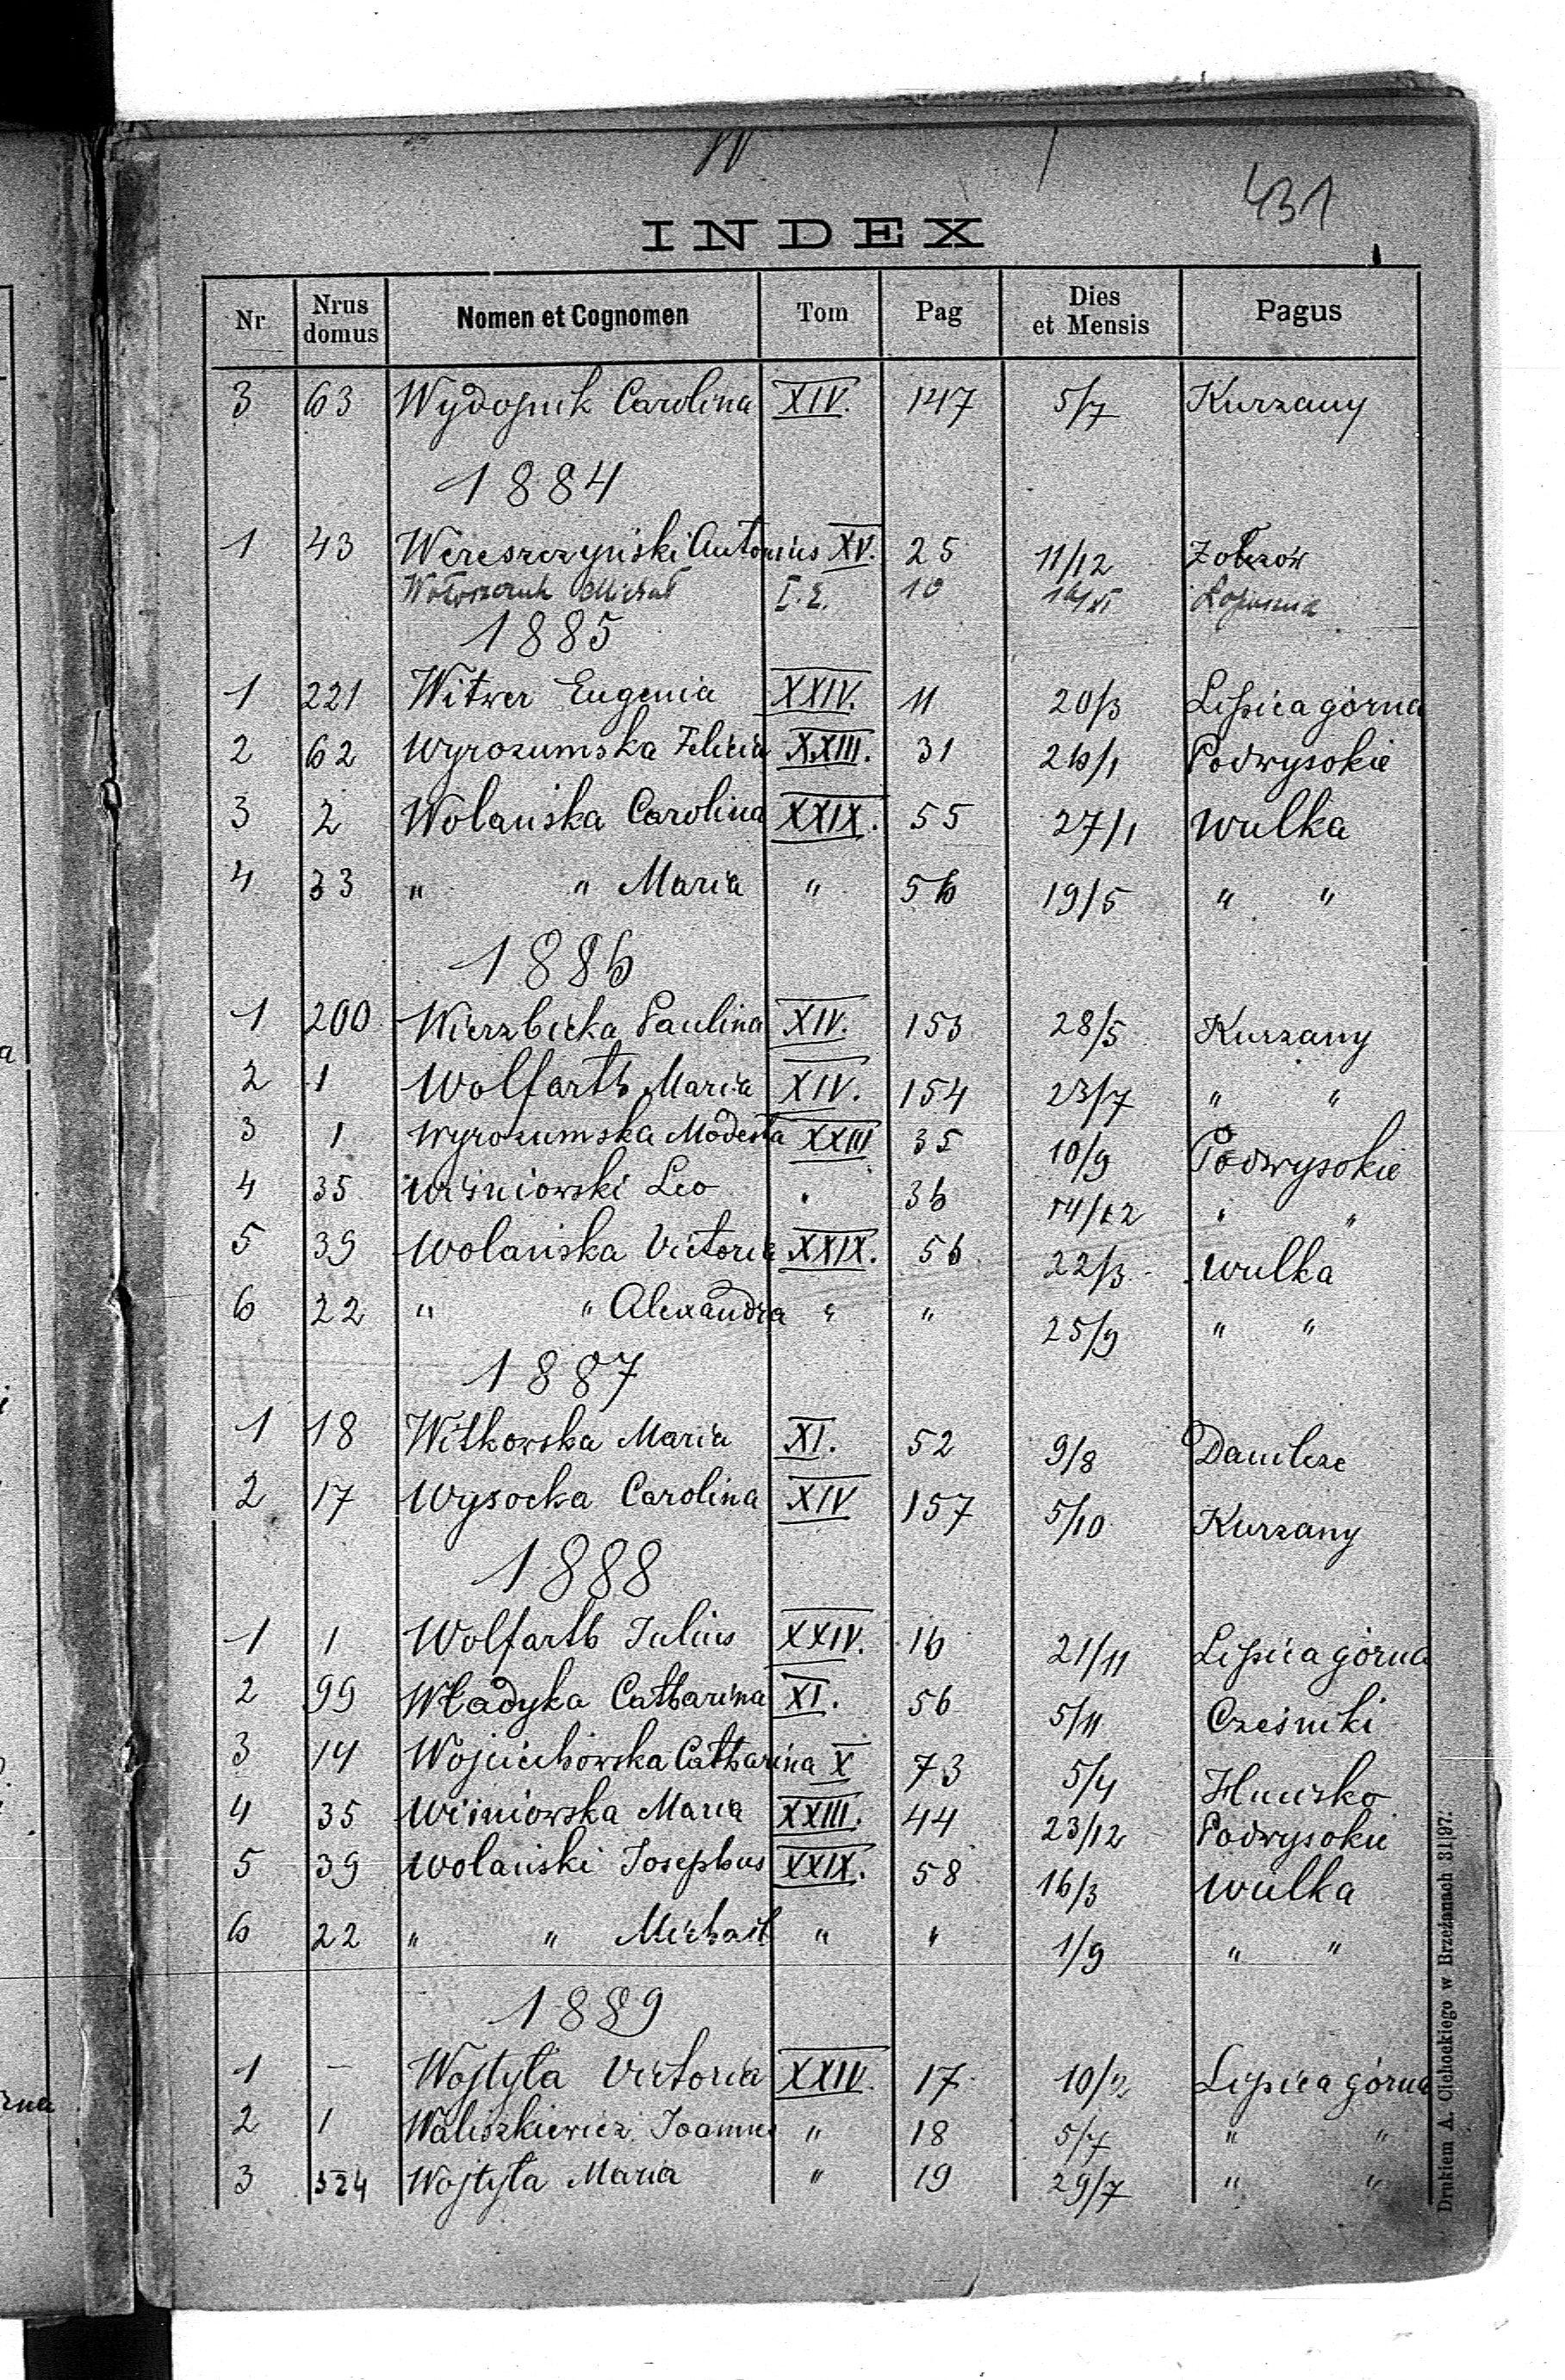 W
431
INDEX
Nr Nrus domus Nomen et Cognomen Tom Pag Dies et Mensis Pagus
3 63 Wydojnik Carolina XIV. 147 5/7 Kurzany
1884
1 43 Wereszczyński Antonius XV. 25 11/12
Michał I.E. 10
1885
1 221 Witwer Eugenia XXIV. 11 20/3 Lipica górna
2 62 Wyrozumska Felicia XXIII. 31 26/1 Podwysokie
3 2 Wolańska Carolina XXIX. 55 27/1 Wulka
4 33 " " Maria " 56 19/5 " "
1886
1 200 Wierzbicka Paulina XIV. 153 28/5 Kurzany
2 1 Wolfarth Maria XIV. 154 23/7 " "
3 1 Wyrozumska Modesta XXIII 35 10/9 Podwysokie
4 35 Wiśniowski Leo " 36 14/12 " "
5 39 Wolańska Victoria XXIX. 56 22/3 Wulka
6 22 " " Alexandra " " 25/9 " "
1887
1 18 Witkowska Maria XI. 52 9/8 Danilcze
2 17 Wysocka Carolina XIV 157 5/10 Kurzany
1888
1 1 Wolfarth Julius XXIV. 16 21/11 Lipica górna
2 99 Władyka Catharina XI. 56 5/11 Cześniki
3 14 Wojciechowska Catharina X 73 5/4 Hucisko
4 35 Wiśniowska Maria XXIII. 44 23/12 Podwysokie
5 39 Wolański Josephus XXIX. 58 16/3 Wulka
6 22 " " Michael " " 1/9 " "
1889
1 — Wojtyła Victoria XXIV. 17 10/2 Lipica górna
2 1 Waliszkiewicz Joannes " 18 5/7 " "
3 324 Wojtyła Maria " 19 29/7 " "
Drukiem A. Cichockiego w Brzeżanach 31|97.